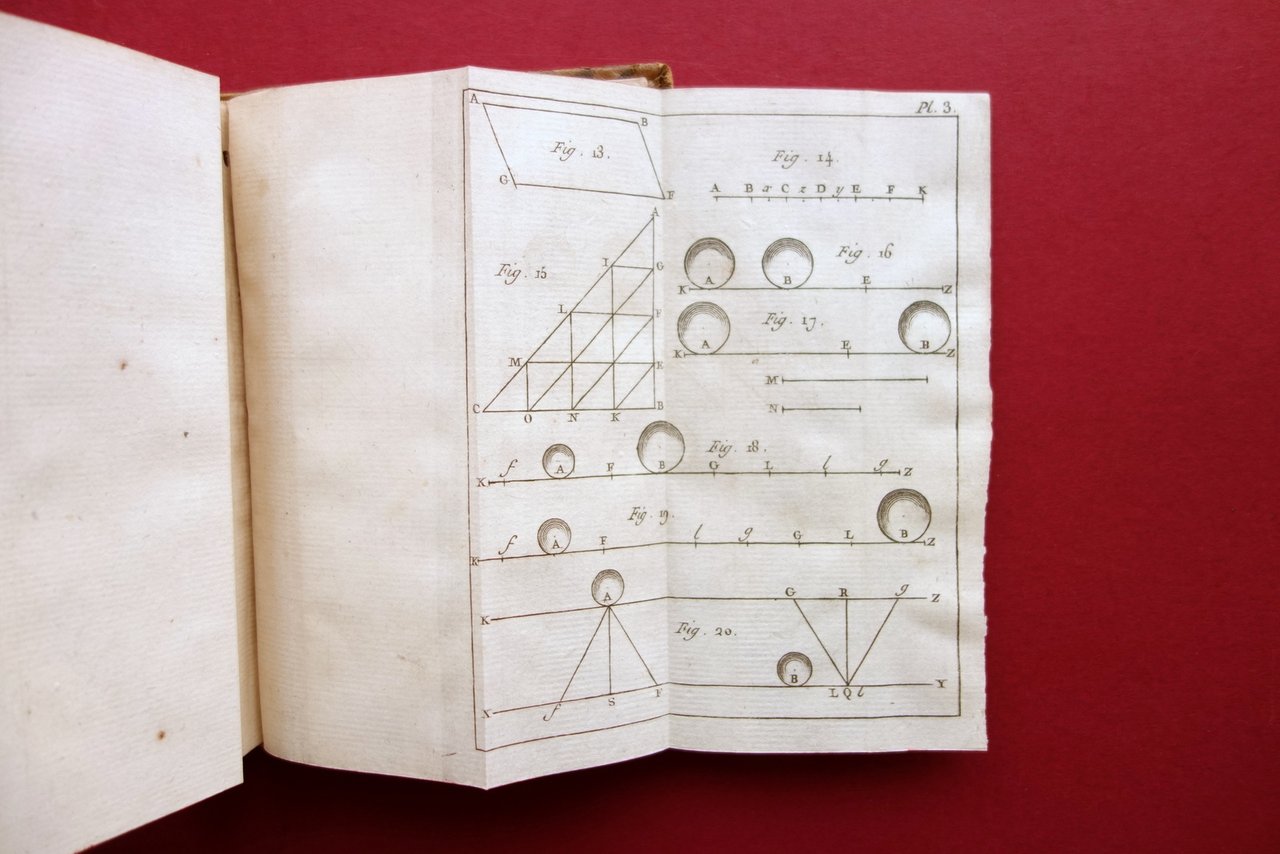 Pl. 3.
A
B
Fig. 13.
G
F
Fig. 14.
A B x C z D y E F K
A
Fig. 15
I G
L F
M E
C O N K B
Fig. 16
A B E
K Z
Fig. 17.
A E B
K Z
M
N
Fig. 18.
K f A F B G L l g Z
Fig. 19.
K f A F l g G L B Z
A G R g Z
K
Fig. 20.
B
X f S F L Q l Y